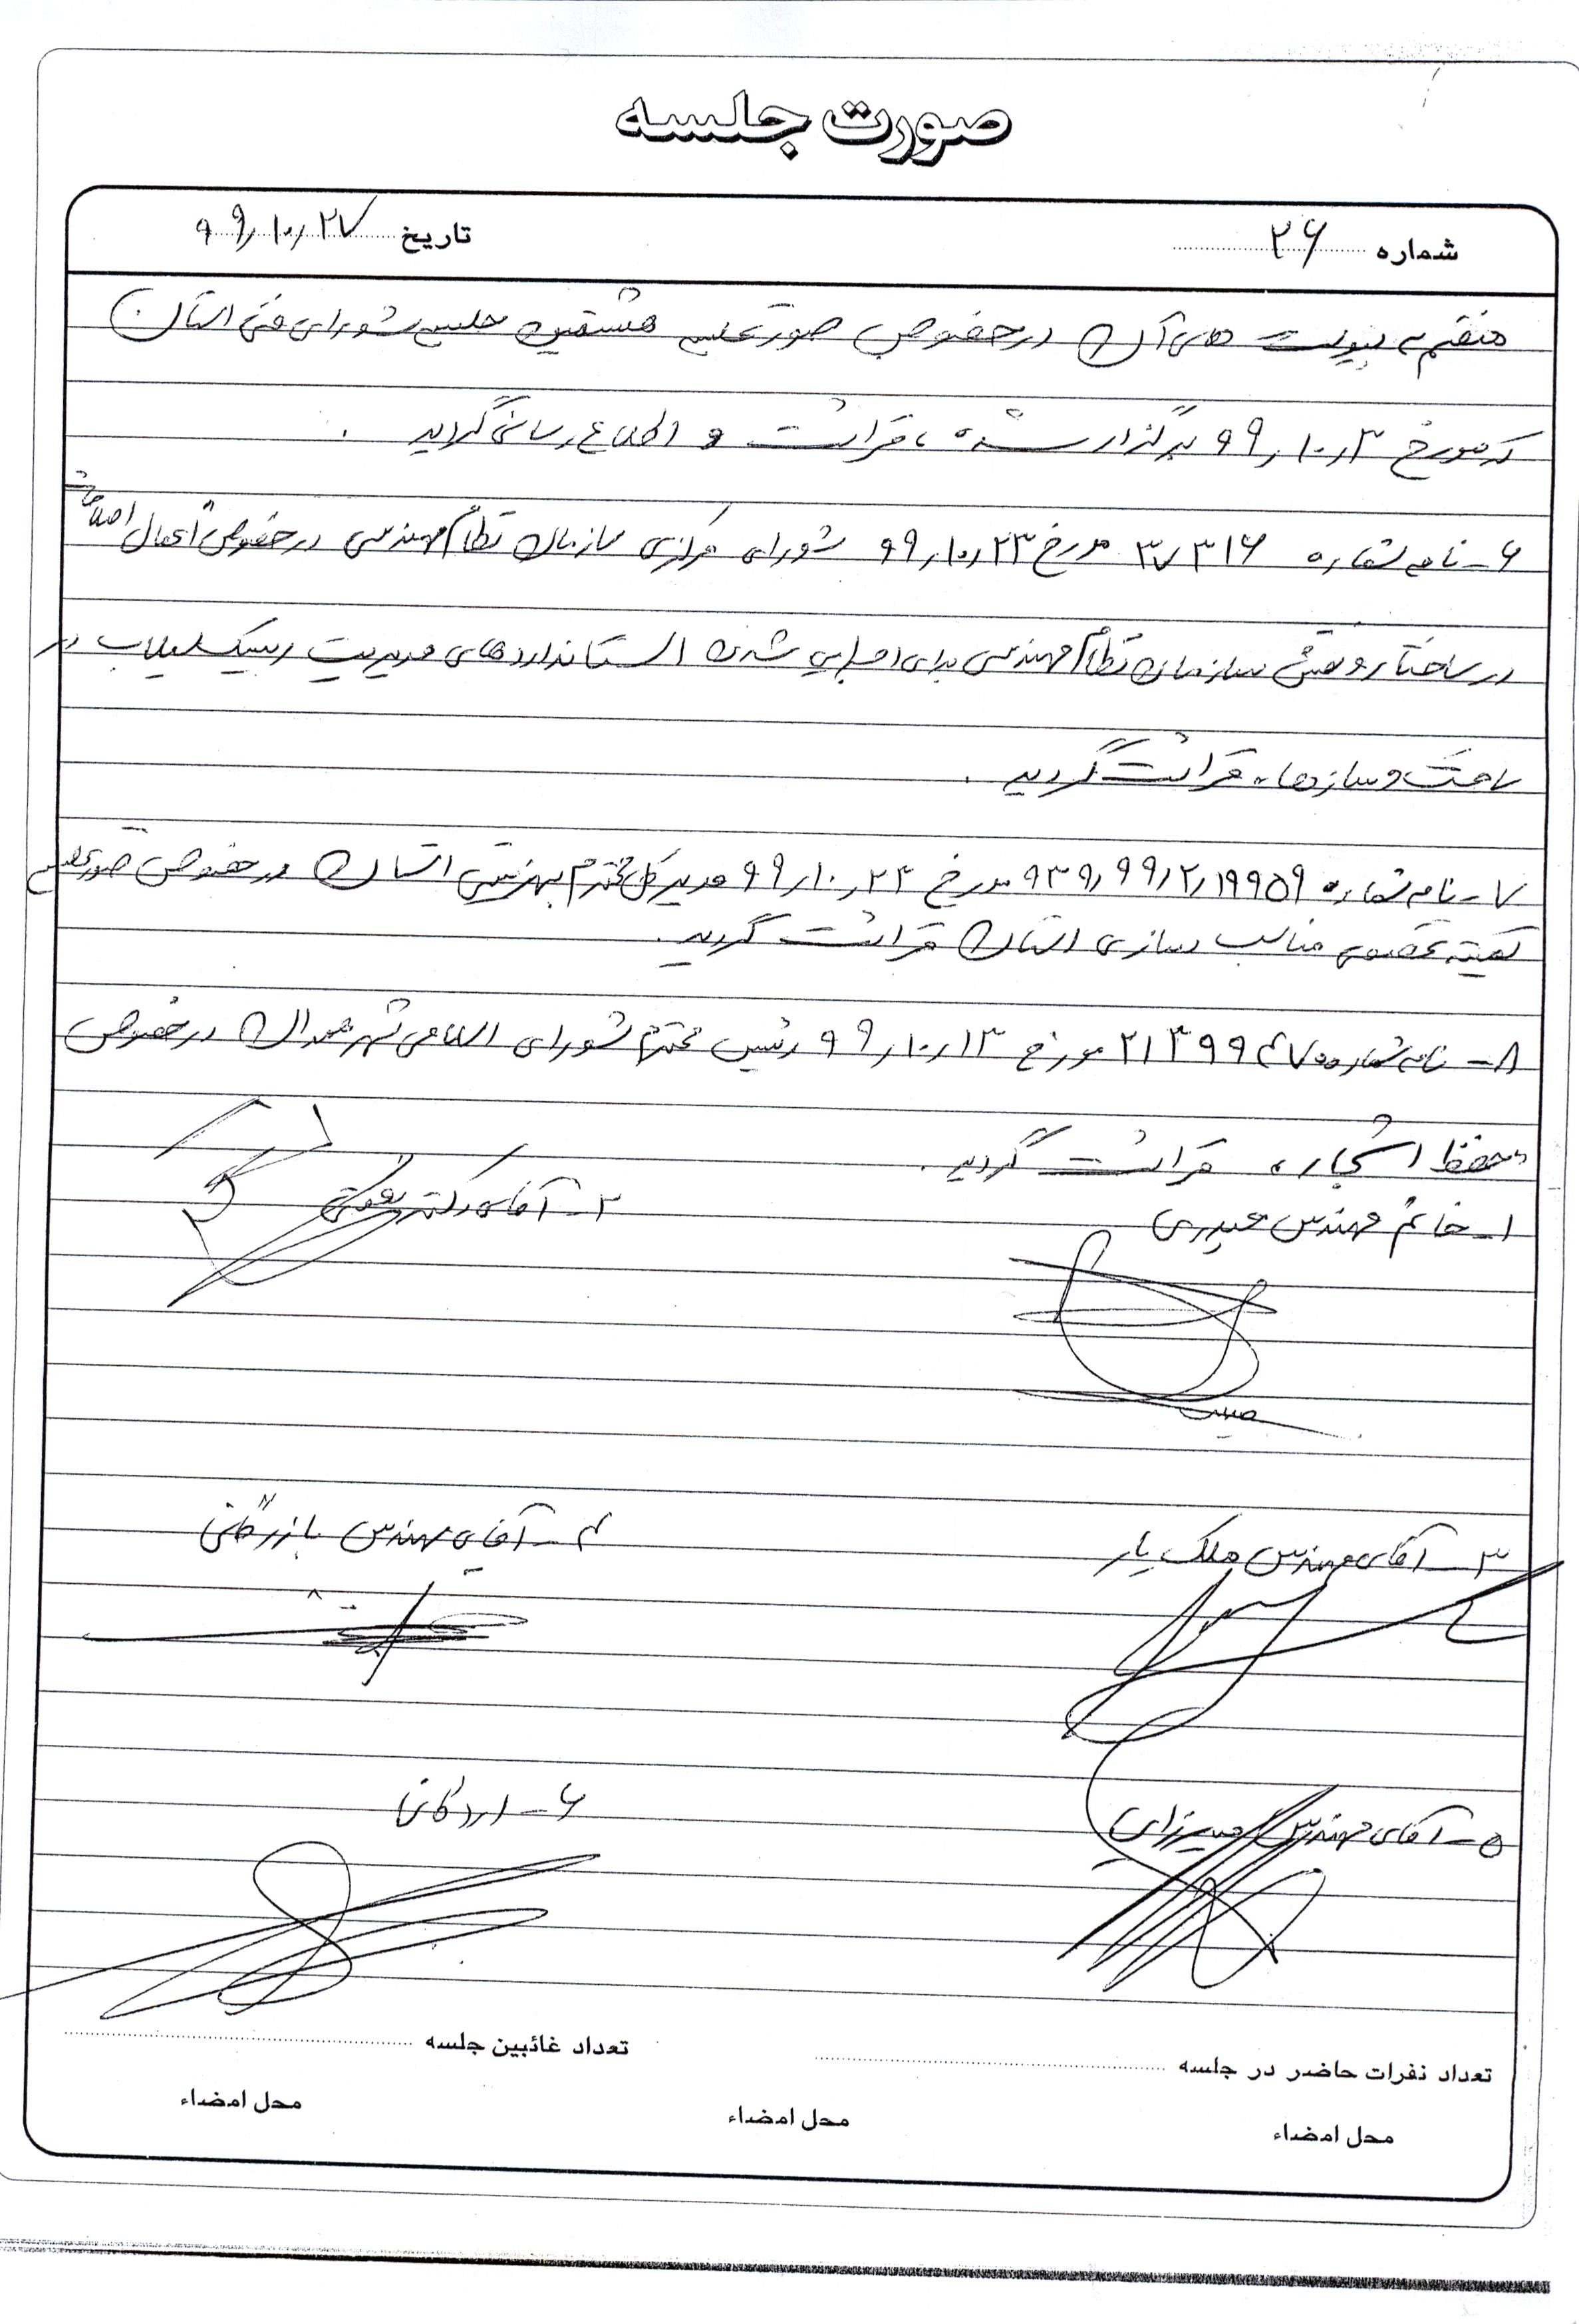 صورت جلسه
شماره ۲۶
تاریخ ۹۹/۱۰/۲۷
منضم به پیوست های آن در خصوص صورتجلسه هشتمین جلسه شورای فنی استان
که مورخ ۹۹/۱۰/۳ برگزار شده، قرائت و اطلاع رسانی گردید.
۶- نامه شماره ۳۷۳۱۶ مورخ ۹۹/۱۰/۲۳ شورای مرکزی سازمان نظام مهندسی در خصوص اعمال اصلاحات
در ساختار و نقش سازمان نظام مهندسی برای اجرایی شدن استانداردهای مدیریت ریسک سیلاب در
ساخت و سازها، قرائت گردید.
۷- نامه شماره ۹۳۹/۹۹/۲/۱۹۹۵۹ مورخ ۹۹/۱۰/۲۳ مدیر کل محترم بهزیستی استان در خصوص صورتجلسه
کمیته تخصصی مناسب سازی استان قرائت گردید.
۸- نامه شماره مورخ ۹۹/۱۰/۱۳ رئیس محترم شورای اسلامی شهر همدان در خصوص
حفظ اشجار، قرائت گردید.
۱- خانم مهندس حیدری
۲- آقای دکتر
۳- آقای مهندس ملک یار
۴- آقای مهندس بازرگانی
۵- آقای مهندس میرزایی
۶- اردکانی
تعداد نفرات حاضر در جلسه
تعداد غائبین جلسه
محل امضاء
محل امضاء
محل امضاء